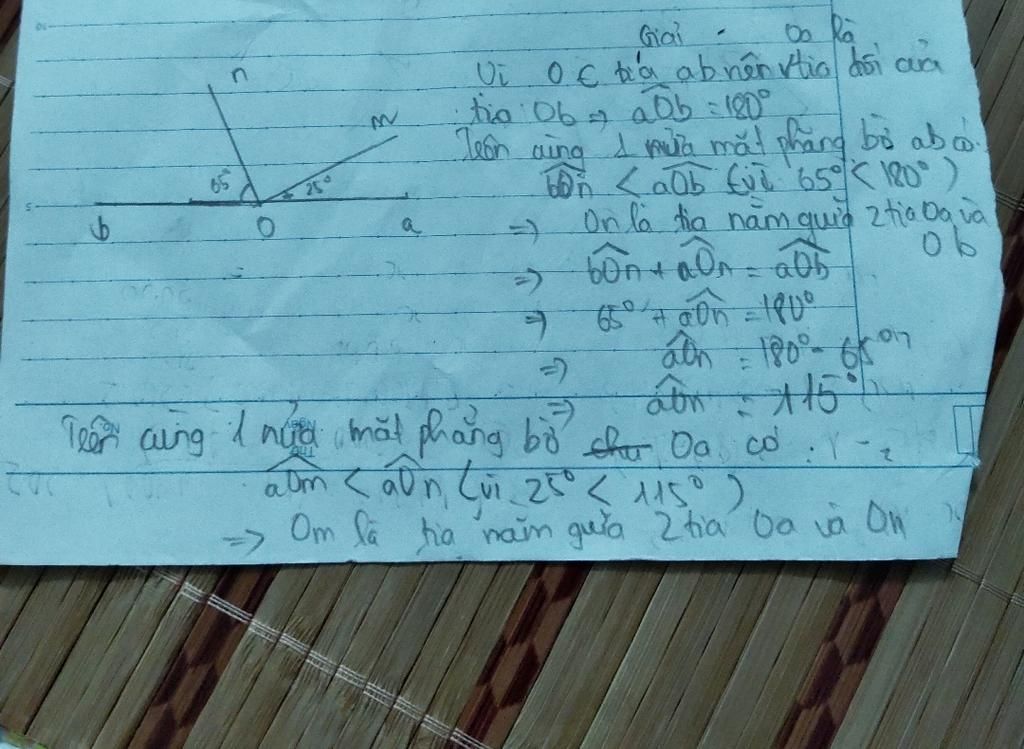 Giải .
Oa là
Vì O ∈ tia ab nên tia đối của
tia Ob => aOb = 180°
Trên cùng 1 nửa mặt phẳng bờ ab có
bOn < aOb (vì 65° < 180°)
=> On là tia nằm giữa 2 tia Oa và
Ob
=> bOn + aOn = aOb
=> 65° + aOn = 180°
=> aOn = 180° - 65°
=> aOn = 115°
n
m
65
25°
b O a
Trên cùng 1 nửa mặt phẳng bờ Oa có :
aOm < aOn (vì 25° < 115°)
=> Om là tia nằm giữa 2 tia Oa và On